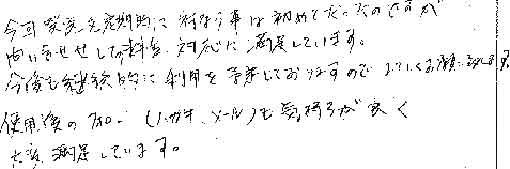 今回 を定期的に 行なう事は初めてだったのですが
問い合せをしての 対応に満足しています。
今後も継続的に利用を予定しておりますのでよろしくお願いします。
使用後のフォロー(ハガキ、メール)も気持ちが良く
大変満足しています。